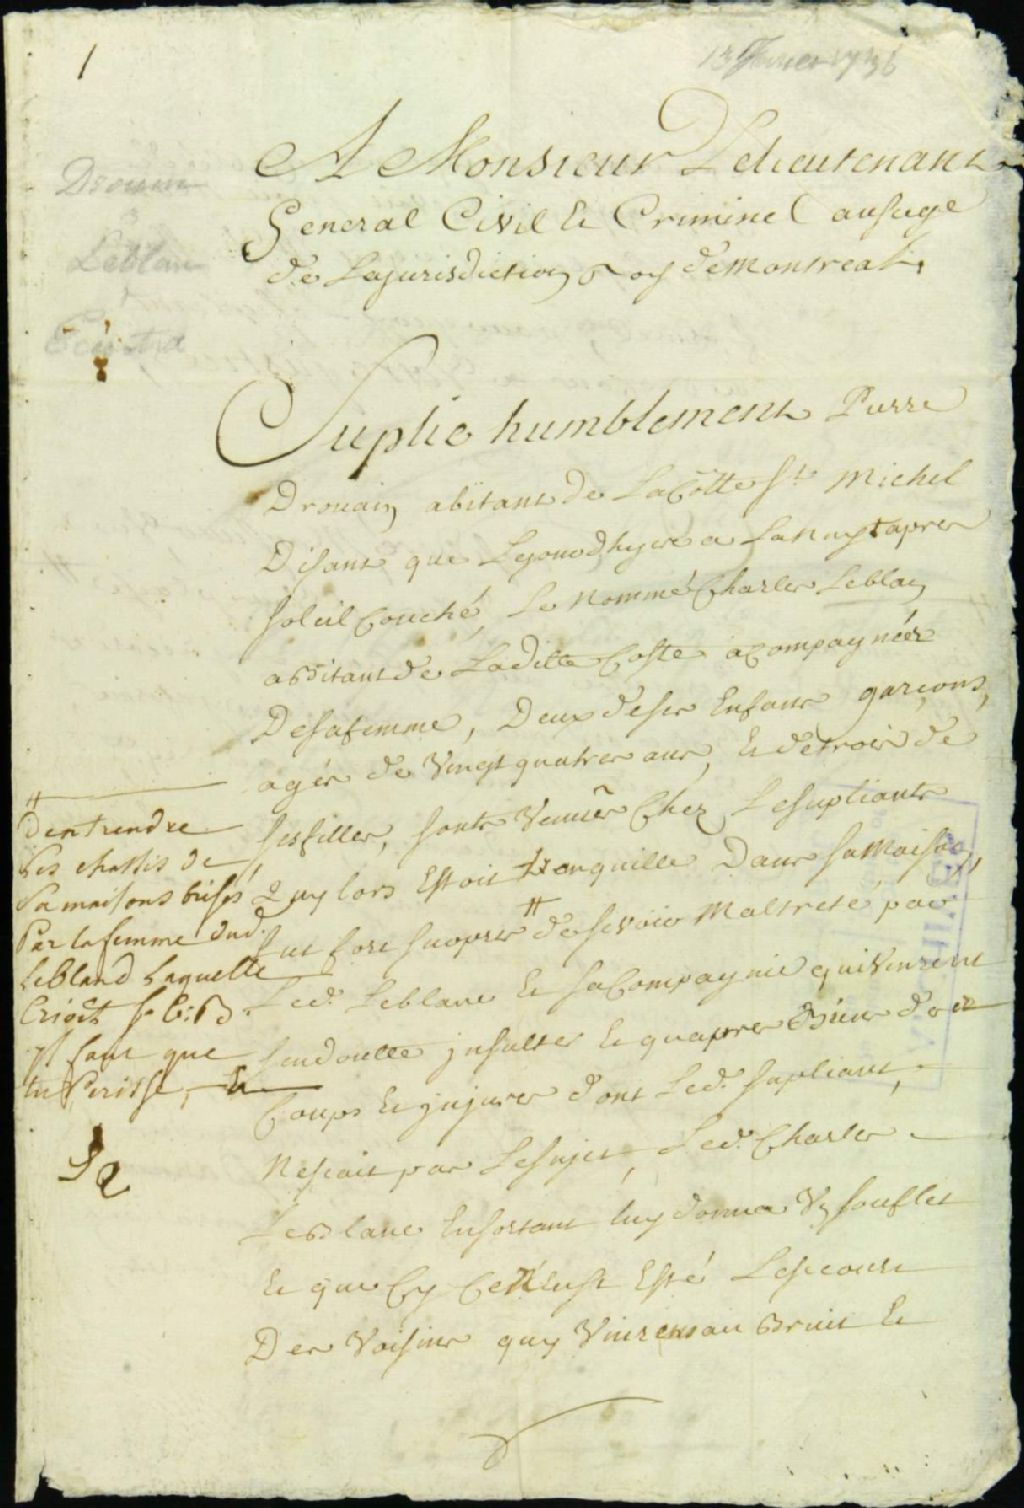 1
13 fevrier 1736
A Monsieur Lelieutenant
General Civil Et Criminel ausiege
de Lajurisdiction Roy demontreal
Drouin
Leblanc
Suplie humblement Pierre
Drouain abitant de LaCôtte St. Michel
Disant que Lejourdhyere a La Nuyt apres
soleil Couché, Le nommé Charles Leblan
abitant de Laditte Coste acompagnéez
Desafemme, Deux deses Enfans garçons,
agés de Vingt quatres ans, Et detrois de
sesfilles, sont Venües Chez Lesupliant
Quy lors Estoit tranquille Dans samaison,
fut fort surpris # desevoir Maltreté par
Led. Leblanc Et saCompagnie quivinrent
Coups Et jnjures dont Led. supliant,
Nesçait pas Lesujet, Led. Charles
Leblanc Ensortant luy donna Un souflet
Et que sy Ce n'eust Esté Lesecours
Des Voisins quy Vinrent au Bruit Et
#
Dentendre
Les chassis de
Sa maisons brisés
Par la femme dud.
LeBland Laquelle
Crioit s. b. B.
jl faut que
tu Perisse, Et